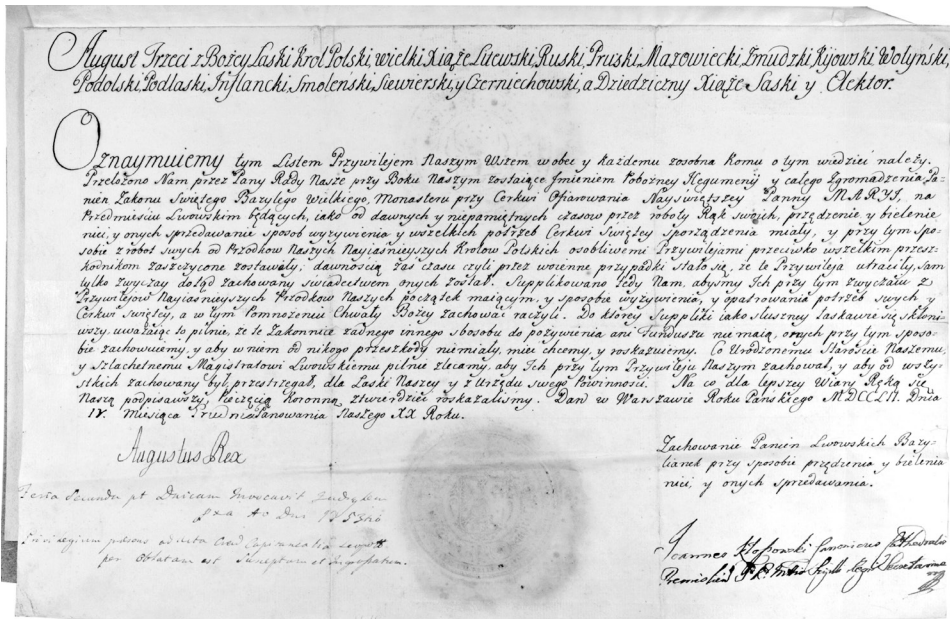 August Trzeci z Bożey Łaski Krol Polski, wielki Xiąże Litewski, Ruski, Pruski, Mazowiecki, Żmudzki, Kijowski, Wołyński,
Podolski, Podlaski, Inflancki, Smoleński, Siewierski, y Czerniechowski, a Dziedziczny Xiąże Saski y Elektor.
Oznaymuiemy tym Listem Przywilejem Naszym Wszem wobec y każdemu zosobna Komu o tym wiedzieć należy.
Przełożono Nam przez Pany Rady Nasze przy Boku Naszym zostaiące Imieniem Pobożney Hegumenij y całego Zgromadzenia Pa-
nien Zakonu Swiętego Bazylego Wielkiego, Monasteru przy Cerkwi Ofiarowania Nayswiętszey Panny MARYI, na
Przedmieściu Lwowskim będących, iako od dawnych y niepamiętnych czasow przez roboty Rąk swoich, przędzenie, y bielenie
nici, y onych sprzedawanie sposob wyżywienia y wszelkich potrzeb Cerkwi Swiętey sporządzenia miały, y przy tym spo-
sobie z robot swych od Przodkow Naszych Nayiaśnieyszych Krolow Polskich osobliwemi Przywilejami przeciwko wszelkim przesz-
kodnikom zaszczycone zostawały; dawnością zaś czasu czyli przez woienne przypadki stało się, że te Przywileja utraciły, sam
tylko zwyczay dotąd zachowany swiadectwem onych został. Supplikowano tedy Nam, abysmy Ich przy tym zwyczaiu z
Przywilejow Nayiaśnieyszych Przodkow Naszych początek maiącym, y sposobie wyżywienia, y opatrowania potrzeb swych y
Cerkwi Swiętey, a w tym pomnożenie Chwały Bożey zachować raczyli. Do ktorey Suppliki iako słuszney łaskawie się skłoni
wszy, uważaiąc to pilnie, że te Zakonnice żadnego innego sposobu do pożywienia ani Funduszu nie maią, onych przy tym sposo-
bie zachowuiemy, y aby w niem od nikogo przeszkody niemiały, mieć chcemy, y roskazuiemy. Co Urodzonemu Staroście Naszemu,
y Szlachetnemu Magistratowi Lwowskiemu pilnie zlecamy, aby Ich przy tym Przywileju Naszym zachował, y aby od wszy-
stkich zachowany był, przestrzegał, dla Łaski Naszey y z Urzędu swego Powinności. Na co dla lepszey Wiary Ręką się
Naszą podpisawszy, Pieczęcią Koronną ztwierdzić roskazaliśmy. Dan w Warszawie Roku Pańskiego MDCCLII. Dnia
IV. Miesiąca Grudnia Panowania Naszego XX Roku.
Augustus Rex
Zachowanie Panien Lwowskich Bazy-
lianek przy sposobie przędzenia y bielenia
nici, y onych sprzedawania.
Feria Secunda pt Dnicam Invocavit
Ao Dni 1753
Privilegium praesens ad Acta
per Oblatam est Susceptum et Ingrossatum.
Joannes Canonicus Cathedralis
Premislien